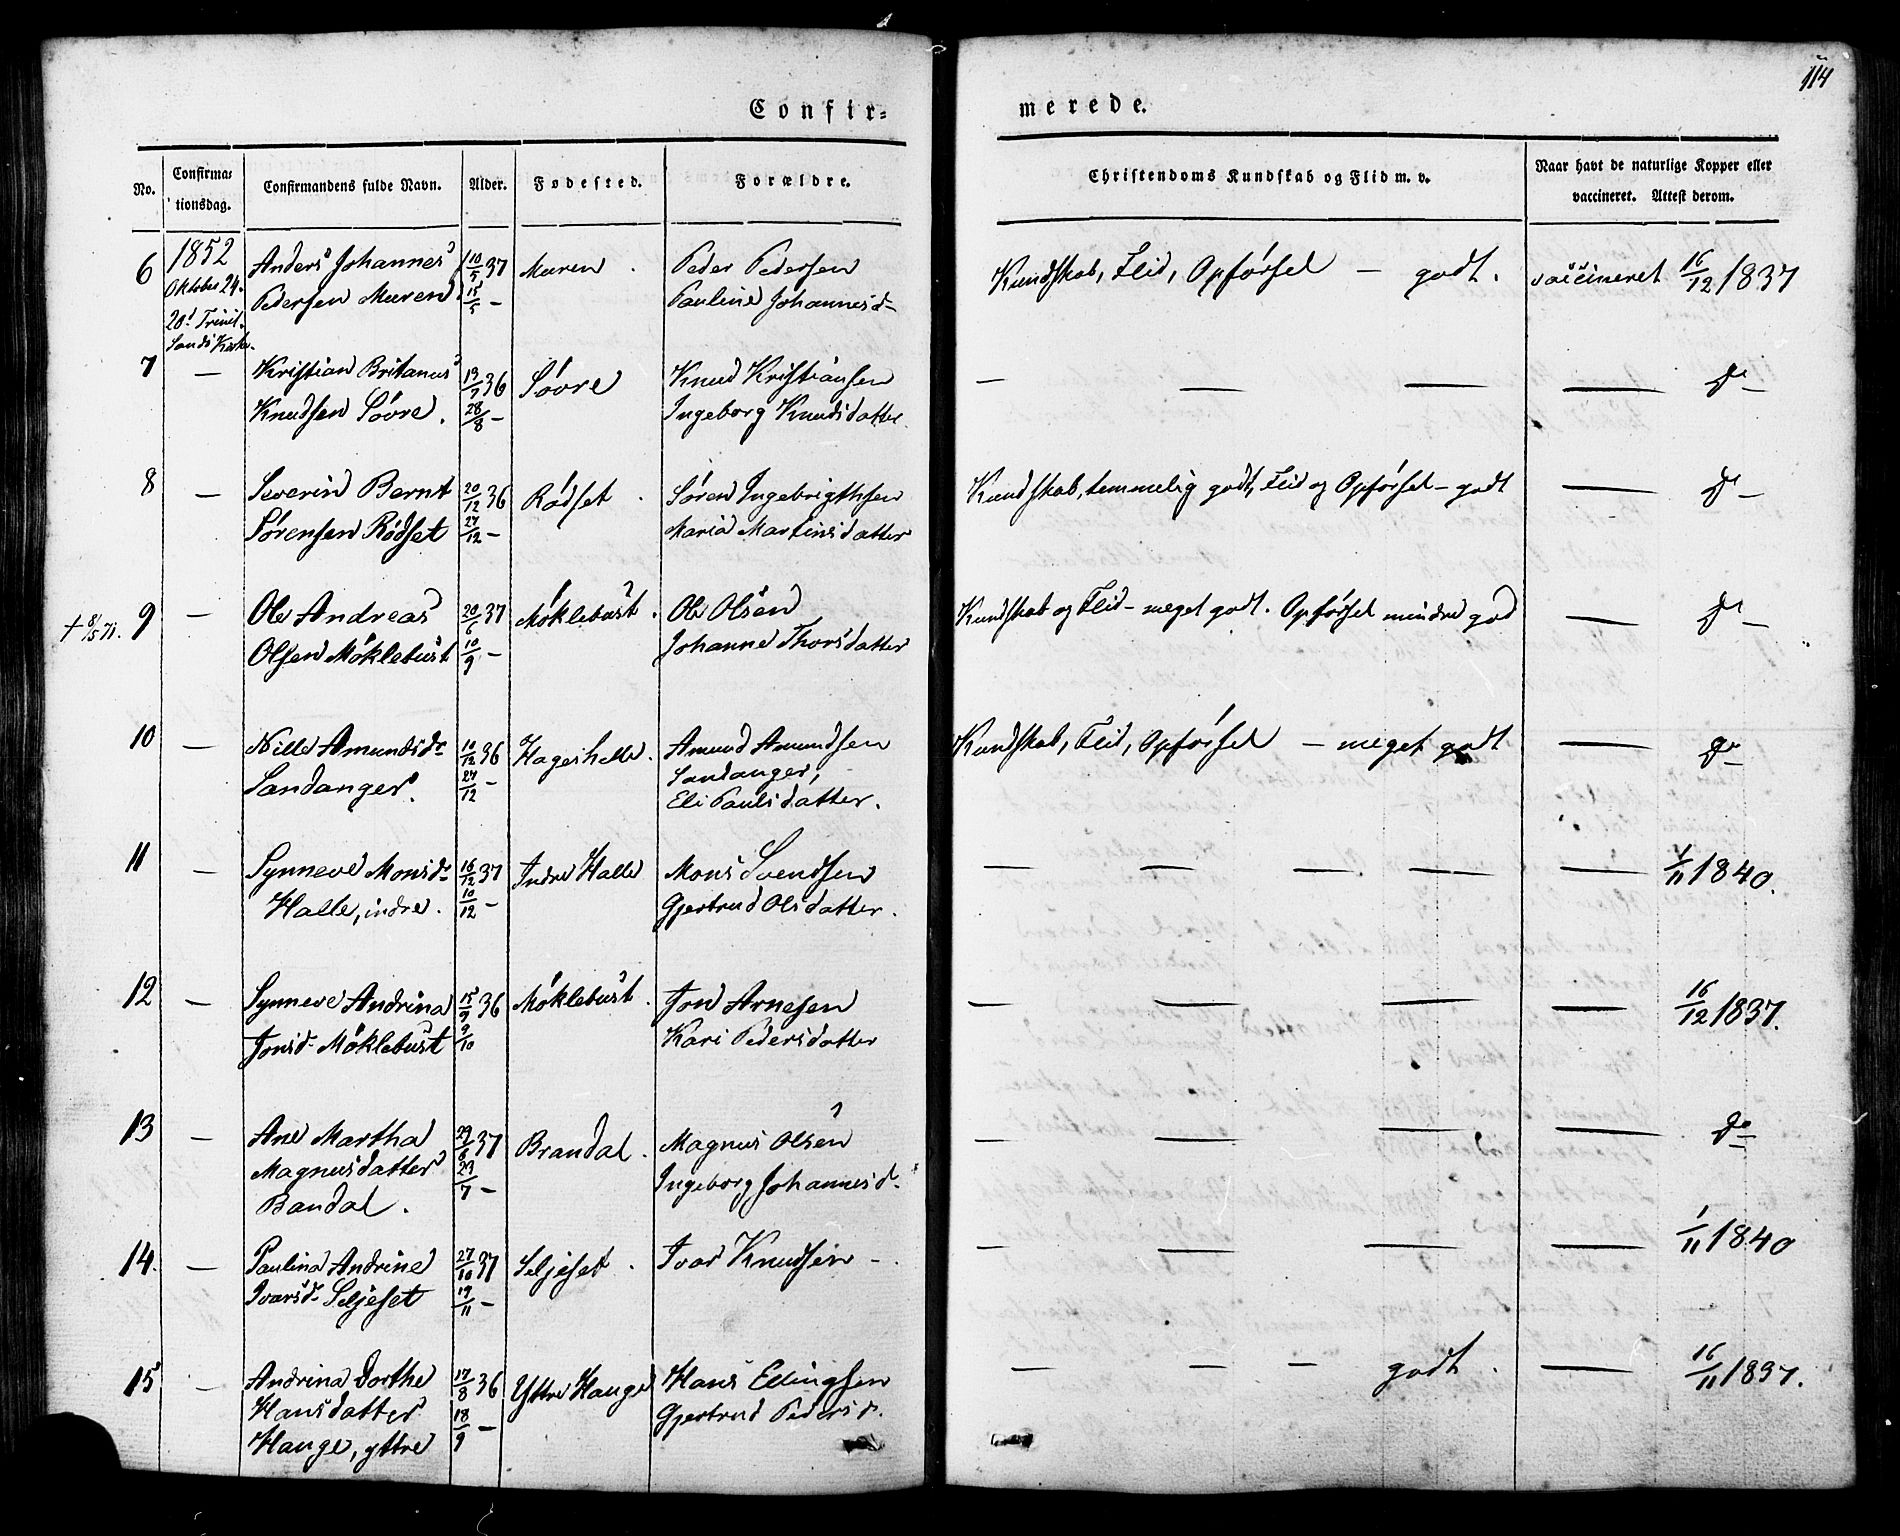 114
Confir= merede.
No. Confirma= tionsdag. Confirmandens fulde Navn. Alder. Fødested. Forældre. Christendoms Kundskab og Flid m. v. Naar havt de naturlige Kopper eller vaccineret. Attest derom.
6 1852 Anders Johannes 10/5 37 Muren . Peder Pedersen Kundskab, Flid, Opførsel — godt . vaccineret 16/12 1837
Oktober 24. Pedersen Muren 15/5 — Pauline Johannesd-
20d Trinit.
Sands Kirke.
7 — Kristian Britanus 36 Søvre Knud Kristiansen — — — — do —
Knudsen Søvre . 28/8 — Ingeborg Knudsdatter
8 — Severin Bernt 20/12 36 Rødset . Søren Ingebrigthsen Kundskab, temmelig godt, Flid og Opførsel — godt — do —
Sørensen Rødset 27/12 — Maria Martinsdatter
† 8/5 71. 9 — Ole Andreas 20/6 37 Møklebust . Ole Olsen Kundskab og Flid — meget godt . Opførsel mindre god — do —
Olsen Møklebust 10/9 — Johanne Thorsdatter
10 — Nille Amundsdr 10/12 36 Hageshelle . Amund Amundsen Kundskab, Flid, Opførsel — meget godt — do —
Sandanger . 27/12 — Sandanger,
Eli Paulsdatter .
11 — Synneve Monsdr 37 Indre Halle Mons Svendsen — — — — — 1/11 1840.
Halle, indre . 10/12 — Gjertrud Olsdatter .
12 — Synneve Andrina 15/9 36 Møklebust . Jon Arnesen — — — — 16/12 1837.
Jonsd- Møklebust 9/10 Kari Pedersdatter
13 — Ane Martha 29/6 37 Brandal . Magnus Olsen — — — — do —
Magnusdatter 23/7 — Ingeborg Johannesd-
Bandal .
14. — Paulina Andrine 27/10 37 Seljeset . Ivar Knudsen — . — — — — 1/11 1840
Ivarsd- Seljeset 19/11 —
15 — Andrina Dorthe 17/8 36 Yttre Hauge Hans Ellingsen — — — godt . — 16/11 1837.
Hansdatter 18/9 — Gjertrud Pedersd.
Hauge, yttre